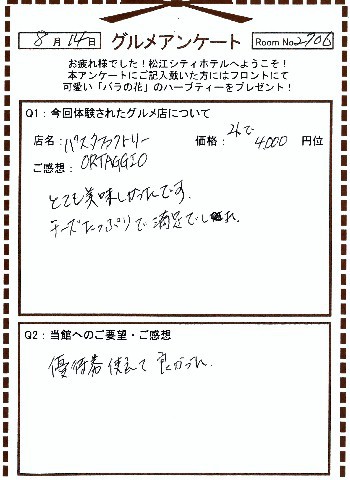 8月14日 グルメアンケート Room No 2706
お疲れ様でした！松江シティホテルへようこそ！
本アンケートにご記入戴いた方にはフロントにて
可愛い「バラの花」のハーブティーをプレゼント！
Q1：今回体験されたグルメ店について
店名：パスタファクトリー 価格：2人で 4000 円位
ORTAGGIO
ご感想：
とても美味しかったです。
チーズたっぷりで満足でした。
Q2：当館へのご要望・ご感想
優待券使えて良かった。